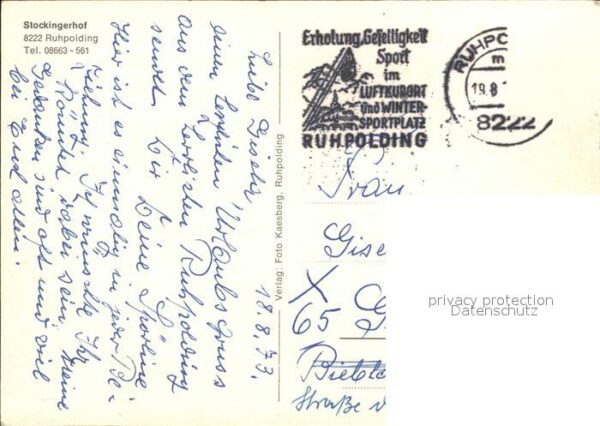 Stockingerhof
8222 Ruhpolding
Tel. 08663 - 561
18.8.73.
Liebe Gisela,
einen Urlaubsgruss
aus dem herrlichen Ruhpolding
sendet Dir Deine
Hier ist es einmalig in jeder Be-
ziehung. Ich wünschte Ihr
könntet dabei sein. Meine
Gedanken sind oft und viel
bei Euch allen!
Verlag: Foto Kaesberg, Ruhpolding
Erholung, Geselligkeit
Sport
im
LUFTKURORT
und WINTER-
SPORTPLATZ
RUHPOLDING
RUHPO
m
19.8.
8222
Frau
Gise
X
65
Straße
privacy protection
Datenschutz